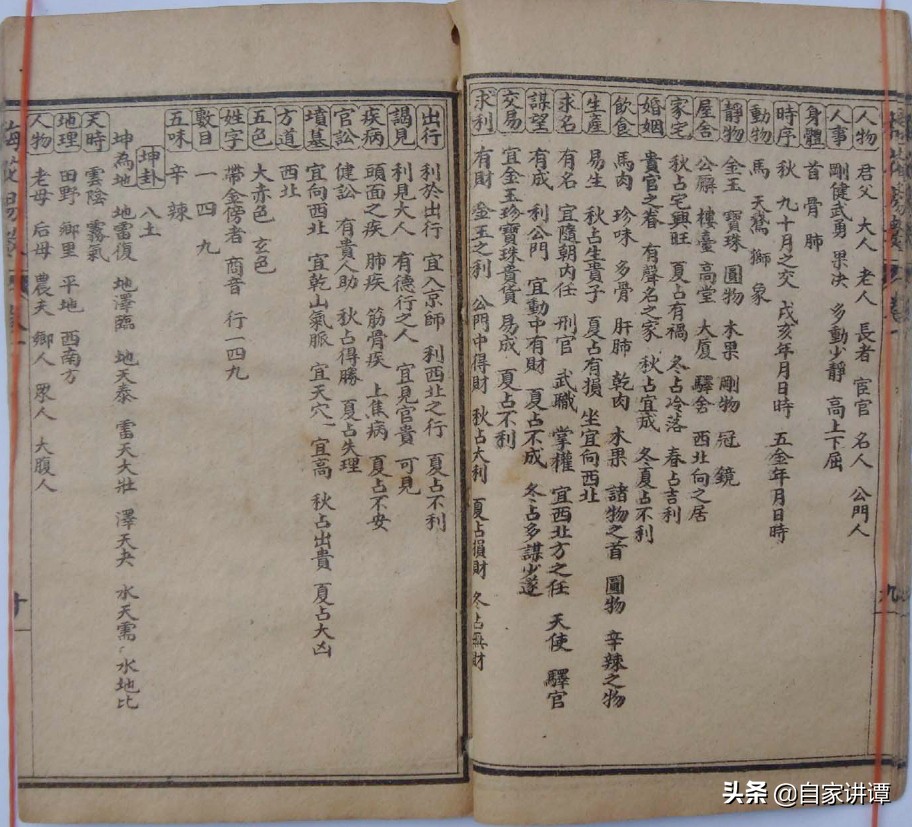 人物 君父 大人 老人 長者 宦官 名人 公門人
人事 剛健武勇 果决 多動少靜 高上下屈
身體 首 骨 肺
時序 秋 九十月之交 戌亥年月日時 五金年月日時
動物 馬 天鵞 獅 象
靜物 金玉 寶珠 圓物 木果 剛物 冠 鏡
屋舍 公廨 樓臺 高堂 大厦 驛舍 西北向之居
家宅 秋占宅興旺 夏占有禍 冬占冷落 春占吉利
婚姻 貴官之眷 有聲名之家 秋占宜成 冬夏占不利
飲食 馬肉 珍味 多骨 肝肺 乾肉 水果 諸物之首 圓物 辛辣之物
生產 易生 秋占生貴子 夏占有損 坐宜向西北
求名 有名 宜隨朝内任 刑官 武職 掌權 宜西北方之任 天使 驛官
謀望 有成 利公門 宜動中有財 夏占不成 冬占多謀少遂
交易 宜金玉珍寶珠貴貨 易成 夏占不利
求利 有財 金玉之利 公門中得財 秋占大利 夏占損財 冬占無財
九
出行 利於出行 宜入京師 利西北之行 夏占不利
謁見 利見大人 有德行之人 宜見官貴 可見
疾病 頭面之疾 肺疾 筋骨疾 上焦病 夏占不安
官訟 健訟 有貴人助 秋占得勝 夏占失理
墳墓 宜向西北 宜乾山氣脈 宜天穴 宜高 秋占出貴 夏占大凶
方道 西北
五色 大赤色 玄色
姓字 帶金傍者 商音 行一四九
數目 一 四 九
五味 辛 辣
坤卦 八土
坤為地 地雷復 地澤臨 地天泰 雷天大壯 澤天夬 水天需 水地比
天時 雲陰 霧氣
地理 田野 鄉里 平地 西南方
人物 老母 后母 農夫 鄉人 眾人 大腹人
十
头条 @自家讲谭